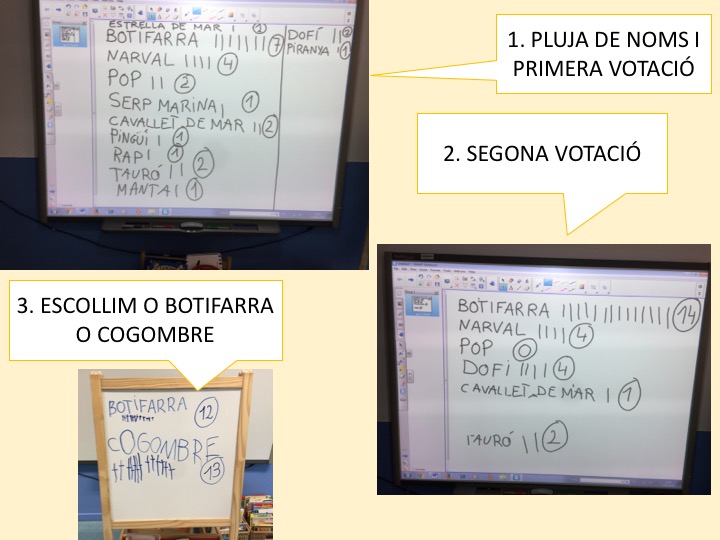 1. PLUJA DE NOMS I
PRIMERA VOTACIÓ
ESTRELLA DE MAR I 1
BOTIFARRA IIIIIII 7
NARVAL IIII 4
POP II 2
SERP MARINA I 1
CAVALLET DE MAR II 2
PINGÜÍ I 1
RAP I 1
TAURÓ II 2
MANTA I 1
DOFÍ II 2
PIRANYA I 1
2. SEGONA VOTACIÓ
BOTIFARRA IIIIIIIIIIIIII 14
NARVAL IIII 4
POP 0
DOFÍ IIII 4
CAVALLET DE MAR I 1
TAURÓ II 2
3. ESCOLLIM O BOTIFARRA
O COGOMBRE
BOTIFARRA 12
COGOMBRE 13